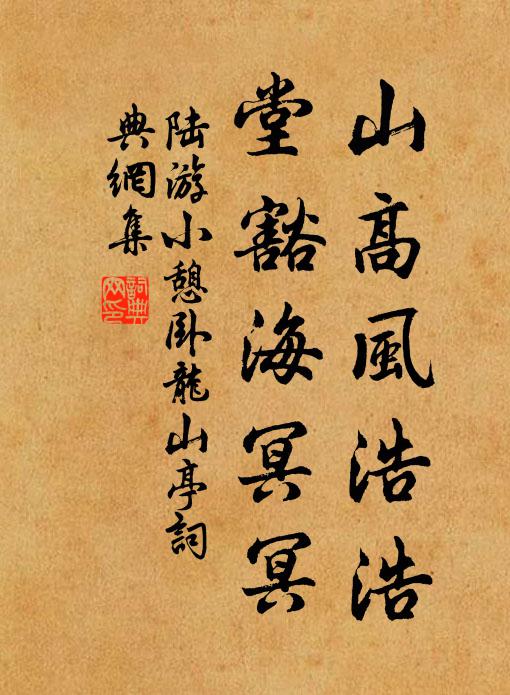 山高風浩浩
堂豁海冥冥
陆游小憩卧龍山亭詞
典網集
詞典
网印